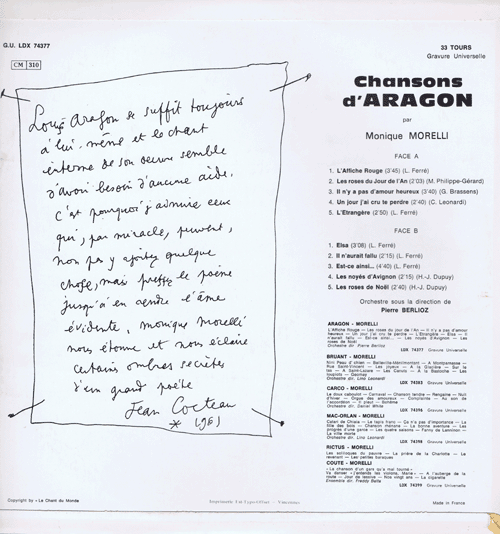 G.U. LDX 74377
CM 310
Louis Aragon se suffit toujours
à lui-même et le chant
interne de son oeuvre semble
n'avoir besoin d'aucune aide.
C'est pourquoi j'admire ceux
qui, par miracle, peuvent,
non pas y ajouter quelque
chose, mais le poème
jusqu'à en rendre l'âme
évidente, monique morelli
nous étonne et nous éclaire
certaines ombres secrètes
d'un grand poète
Jean Cocteau
* 1961
33 TOURS
Gravure Universelle
Chansons
d'ARAGON
par
Monique MORELLI
FACE A
1. L'Affiche Rouge (3'45) (L. Ferré)
2. Les roses du Jour de l'An (2'03) (M. Philippe-Gérard)
3. Il n'y a pas d'amour heureux (3'40) (G. Brassens)
4. Un jour j'ai cru te perdre (2'40) (C. Leonardi)
5. L'Etrangère (2'50) (L. Ferré)
FACE B
1. Elsa (3'08) (L. Ferré)
2. Il n'aurait fallu (2'15) (L. Ferré)
3. Est-ce ainsi... (4'40) (L. Ferré)
4. Les noyés d'Avignon (2'15) (H.-J. Dupuy)
5. Les roses de Noël (2'40) (H.-J. Dupuy)
Orchestre sous la direction de
Pierre BERLIOZ
ARAGON - MORELLI
L'Affiche Rouge — Les roses du jour de l'An — Il n'y a pas d'amour
heureux — Un jour j'ai cru te perdre — L'Etrangère — Elsa — Il
n'aurait fallu — Est-ce ainsi... — Les noyés d'Avignon — Les
roses de Noël
Orchestre dir. Pierre Berlioz
LDX 74377 Gravure Universelle
BRUANT - MORELLI
Nini Peau d'chien — Belleville-Ménilmontant — A Montparnasse —
Rue Saint-Vincent — Les joyeux — A la Glacière — Sur le
tas — A Saint-Lazare — Les Canuts — A la Bastoche — Les
loupiots — Geomay
Orchestre dir. Lino Leonardi
Gravure Universelle
CARCO - MORELLI
Le doux caboulot — Carnaval — Chanson tendre — Rengaine — Nuit
d'hiver — Orgue des amoureux — Complainte — Au son de
l'accordéon — Il pleut — Bohème
Orchestre dir. Daniel White
LDX 74396 Gravure Universelle
MAC-ORLAN - MORELLI
Orchestre dir. Lino Leonardi
LDX 74398 Gravure Universelle
RICTUS - MORELLI
Les soliloques du pauvre — La prière de la Charlotte — Le
revenant — Les petites baraques
COUTE - MORELLI
« La chanson d'un gars qu'a mal tourné »
Ensemble dir. Freddy Balta
LDX 74399 Gravure Universelle
Copyright by « Le Chant du Monde
Made in France